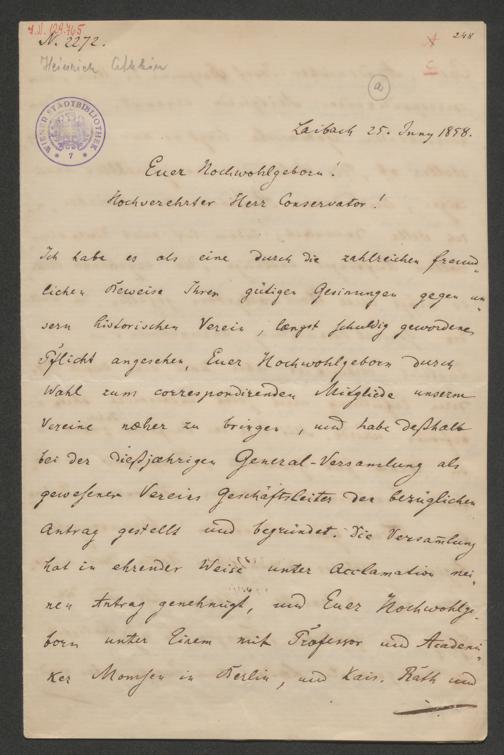 J.N. 129.765
N. 2272.
248
Heinrich
a
WIENER STADTBIBLIOTHEK
* 7 *
Laibach 25. Juny 1858.
Euer Hochwohlgeborn!
Hochverehrter Herr Conservator!
Ich habe es als eine durch die zahlreichen freund„
lichen Beweise Ihrer gütigen Gesinungen gegen un„
sern historischen Verein, længst schuldig gewordene
Pflicht angesehen, Euer Hochwohlgeborn durch
Wahl zum correspondirenden Mitgliede unserm
Vereine næher zu bringen, und habe deßhalb
bei der dießjæhrigen General-Versamlung als
gewesener Vereins Geschäftsleiter den bezüglichen
Antrag gestellt und begründet. Die Versam̄lung
hat in ehrender Weise unter Acclamation mei„
nen Antrag genehmigt, und Euer Hochwohlge„
born unter Einem mit Professor und Academi„
ker Momsen in Berlin, und Kais. Rath und